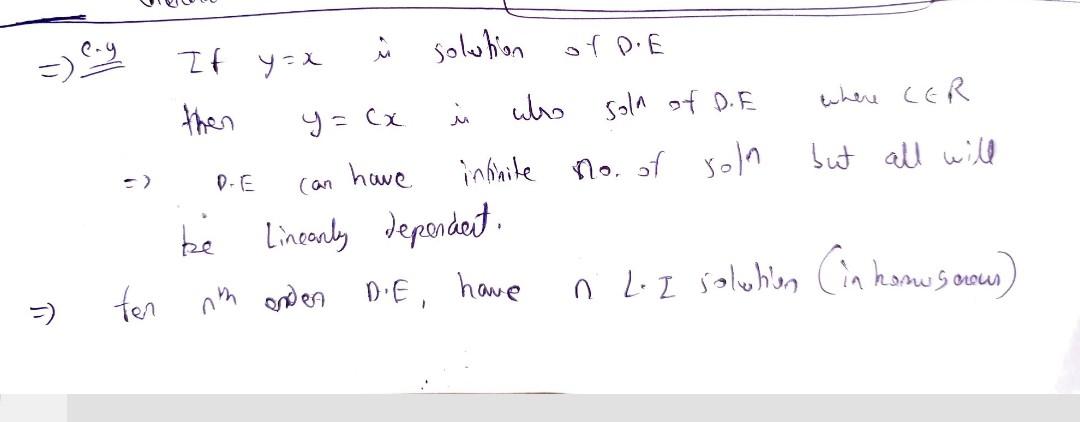 => e.g If y=x is solution of D.E
then y = cx is also soln of D.E where C∈R
=> D.E can have infinite no. of soln but all will
be Linearly dependent.
=> for nth order D.E, have n L.I solution (in homogeneous)